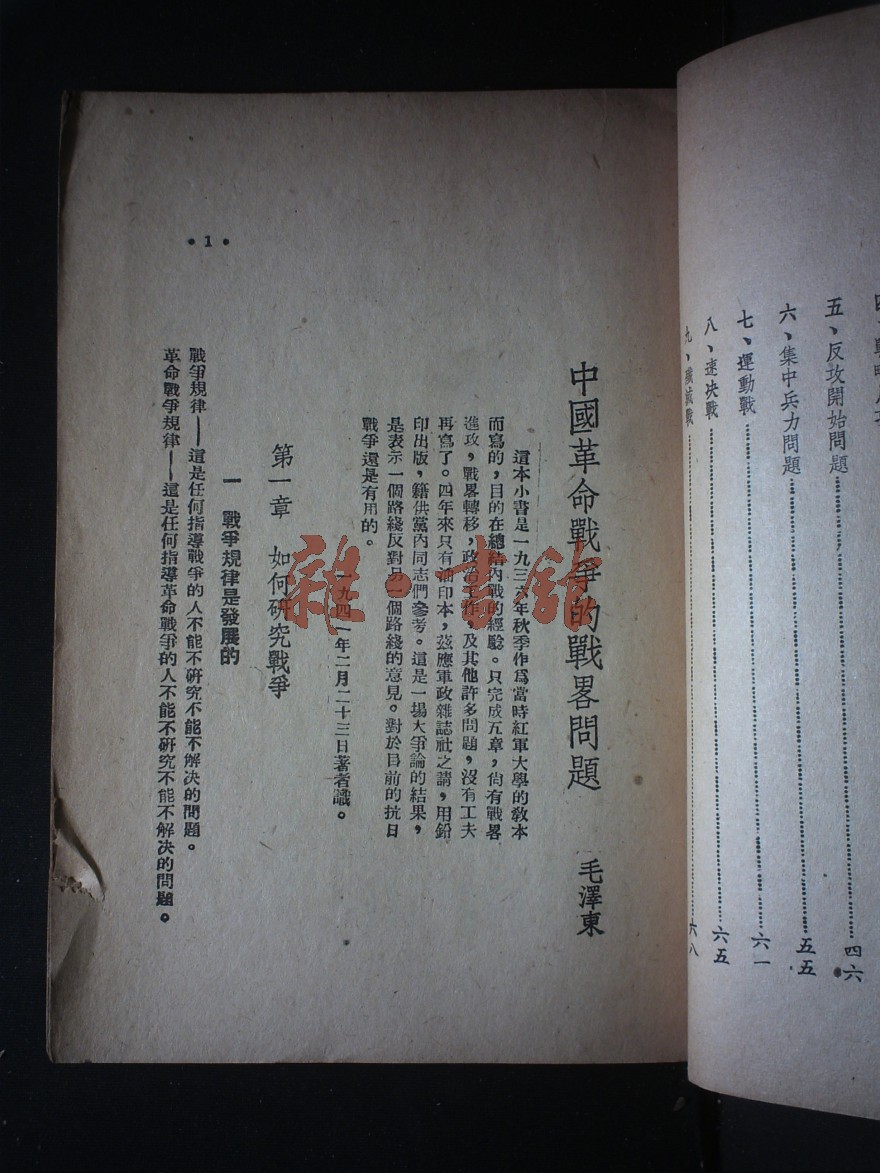 五、反攻開始問題……………………四六
六、集中兵力問題……………………五五
七、運動戰……………………六一
八、速决戰……………………六五
九、殲滅戰……………………六八
中國革命戰爭的戰畧問題
毛澤東
這本小書是一九三六年秋季作爲當時紅軍大學的敎本
而寫的，目的在總結內戰的經驗。只完成五章，尙有戰畧
進攻，戰畧轉移，政治工作，及其他許多問題，沒有工夫
再寫了。四年來只有油印本，茲應軍政雜誌社之請，用鉛
印出版，籍供黨內同志們參考。這是一場大爭論的結果，
是表示一個路綫反對另一個路綫的意見。對於目前的抗日
戰爭還是有用的。
一九四一年二月二十三日著者識。
第一章 如何硏究戰爭
一 戰爭規律是發展的
戰爭規律——這是任何指導戰爭的人不能不硏究不能不解决的問題。
革命戰爭規律——這是任何指導革命戰爭的人不能不硏究不能不解决的問題。
•1•
雜·書館